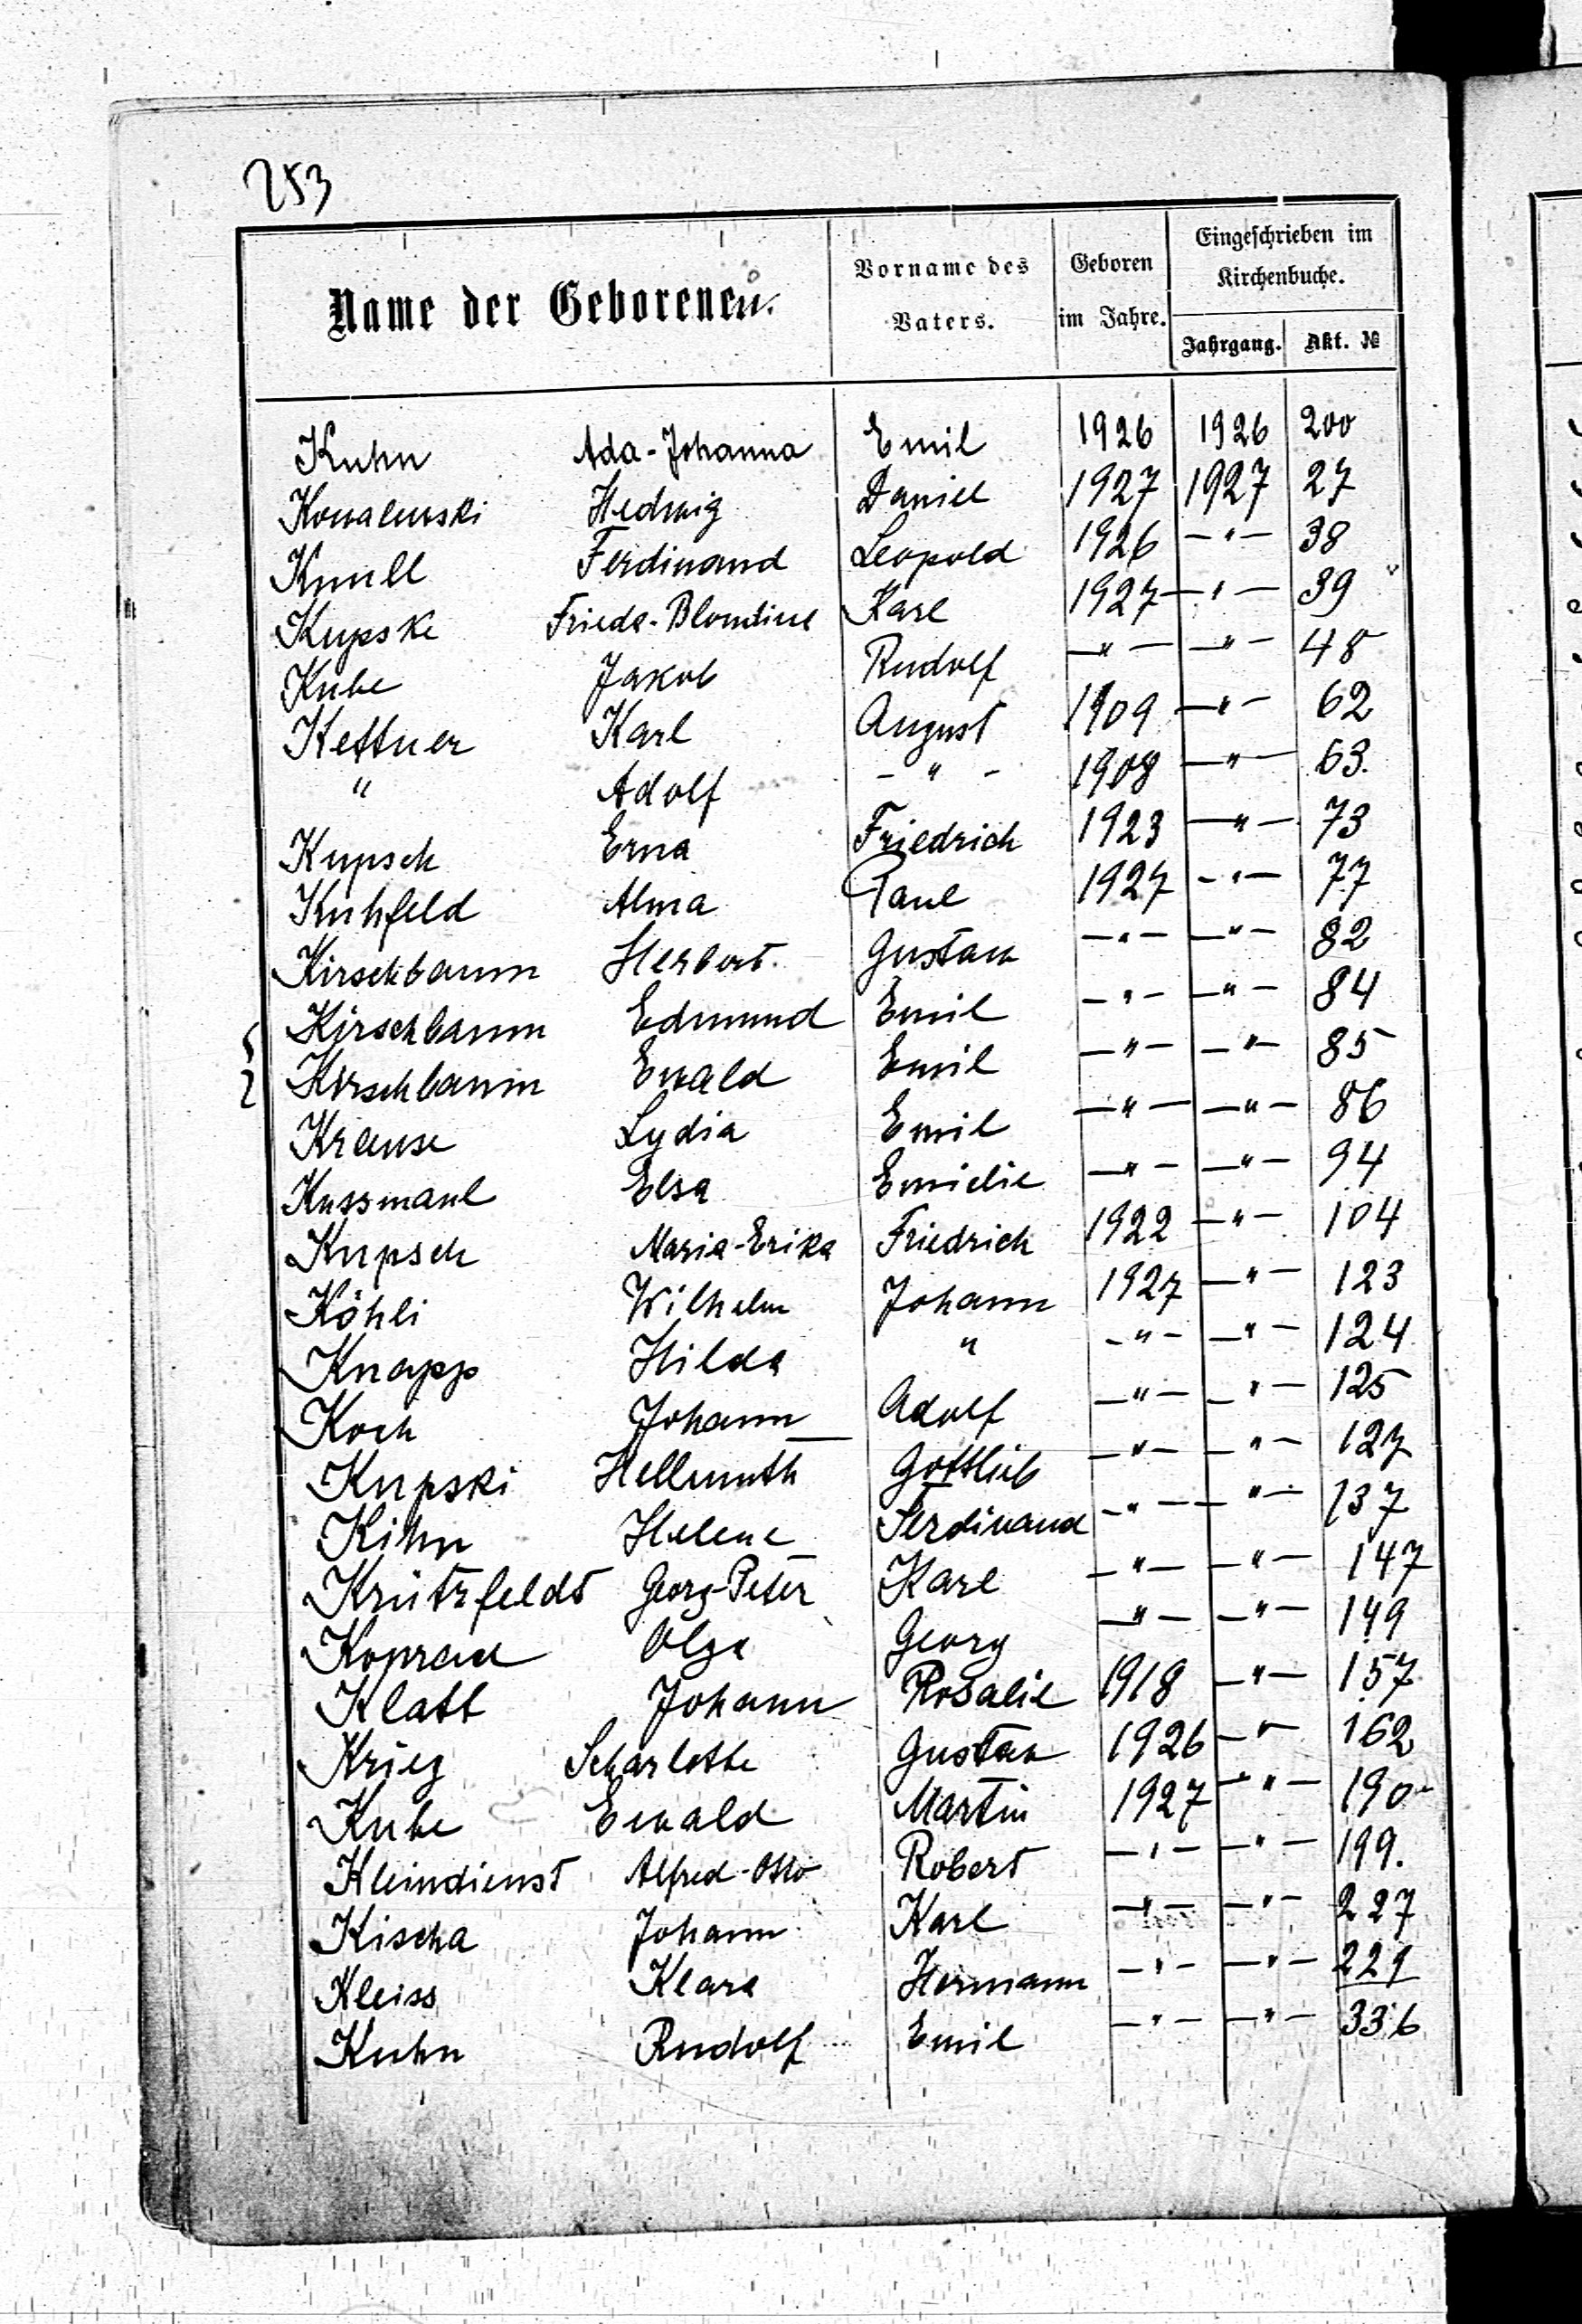 253
Name der Geborenen. Vorname des Vaters. Geboren im Jahre. Eingeschrieben im Kirchenbuche.
Jahrgang. Akt. №
Kuhn Ada-Johanna Emil 1926 1926 200
Kowalewski Hedwig Daniel 1927 1927 27
Knull Ferdinand Leopold 1926 -"- 38
Kupske Frieda-Blondine Karl 1927 -"- 39
Kube Jakob Rudolf -"- -"- 48
Kettner Karl August 1909 -"- 62
" Adolf -"- 1908 -"- 63.
Kupsch Erna Friedrich 1923 -"- 73
Kuhfeld Alma Paul 1927 -"- 77
Kirschbaum Herbert. Gustav -"- -"- 82
Kirschbaum Edmund Emil -"- -"- 84
Kirschbaum Ewald Emil -"- -"- 85
Krause Lydia Emil -"- -"- 86
Kussmaul Elsa Emilie -"- -"- 94
Kupsch Maria-Erika Friedrich 1922 -"- 104
Köhli Wilhelm Johann 1927 -"- 123
Knapp Hilda " -"- -"- 124
Koch Johann Adolf -"- -"- 125
Kupski Hellmuth Gottlieb -"- -"- 127
Kihn Helene Ferdinand -"- -"- 137
Krützfeldt Georg-Peter Karl -"- -"- 147
Konrad Olga Georg -"- -"- 149
Klatt Johann Rosalie 1918 -"- 157
Krieg Scharlotte Gustav 1926 -"- 162
Kube Ewald Martin 1927 -"- 190
Kleindienst Alfred-Otto Robert -"- -"- 199.
Kischa Johann Karl -"- -"- 227
Kleiss Klara Hermann -"- -"- 229
Kuhn Rudolf Emil -"- -"- 336